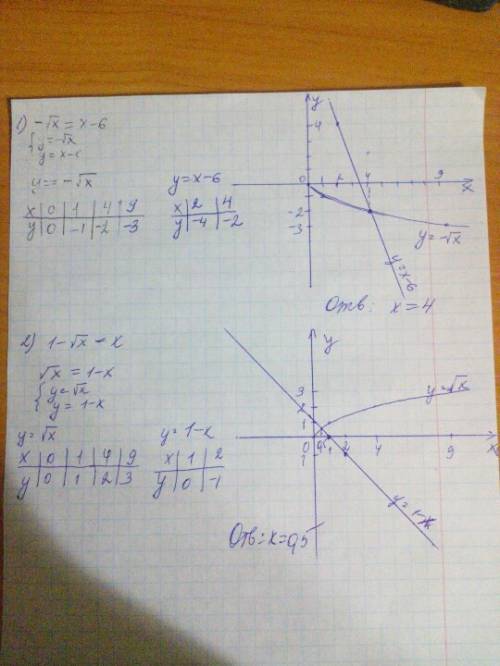 1) -√x = x-6
{ y=-√x
y = x-6
y = -√x
x | 0 | 1 | 4 | 9
y | 0 | -1 | -2 | -3
y = x-6
x | 2 | 4
y | -4 | -2
y
4
0 9 x
-2
-3
y=-√x
y=x-6
Отв: x = 4
2) 1-√x = x
√x = 1-x
{ y=√x
y = 1-x
y=√x
x | 0 | 1 | 4 | 9
y | 0 | 1 | 2 | 3
y = 1-x
x | 1 | 2
y | 0 | -1
y
3
2
1
0 1 2 4 9 x
1
y=√x
y=1-x
Отв: x=0,5